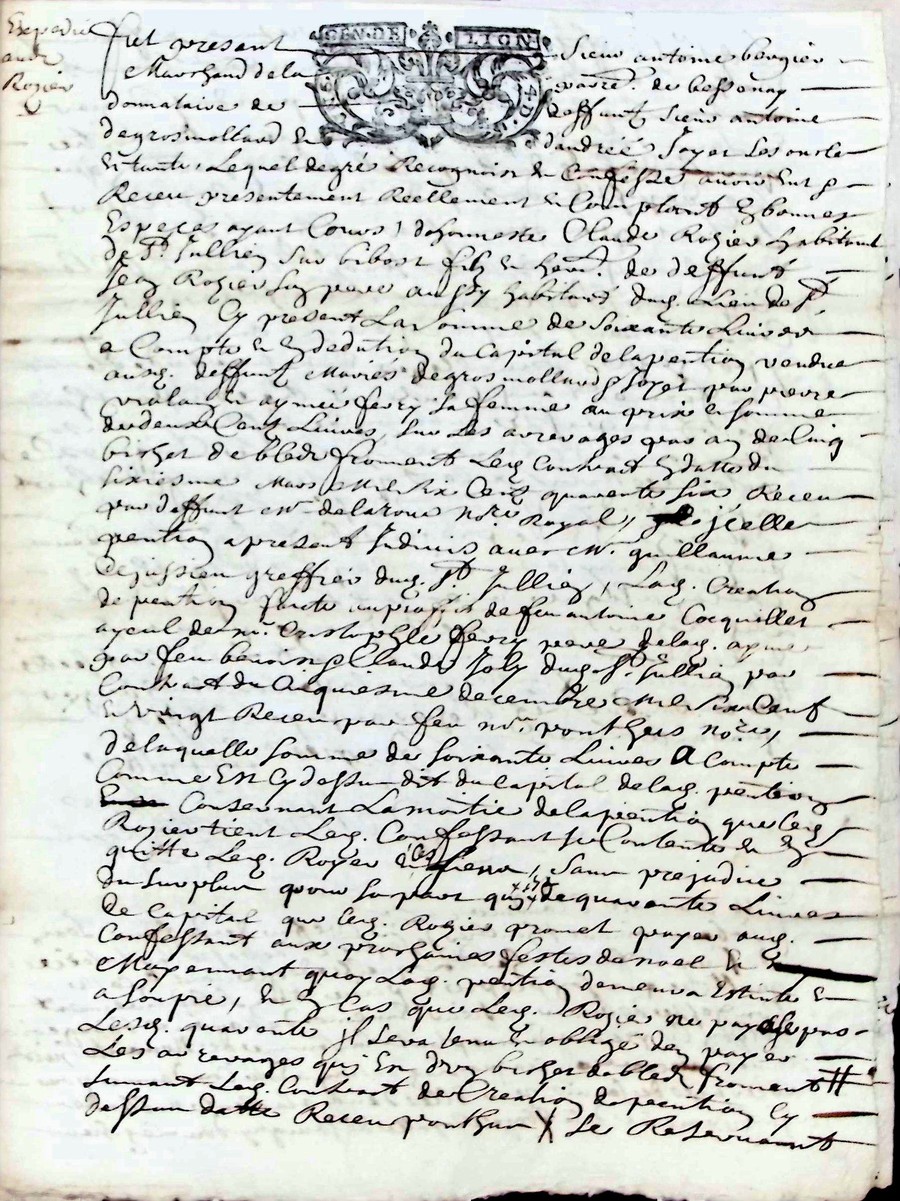 Expedié
aud
Rozier
GEN. DE LION
Fut present Sieur antoine bergier
Marchand de la parre. de bessenay
donnataire de deffunt Sieur antoine
degrosmolland & dandrée Joyet Les oncle
& tante, Lequel de gré Recognoist & Confesse avoir Eut &
Receu presentement Reellement & Comptant En bonnes
Especes ayant Cours, dhonneste Claude Rozier habitant
de St. Jullien Sur bibost filz & herr. de deffunt
Jean Rozier Son pere aussy habitant dud. Lieu de St.
Jullien Cy present La Somme de Soixante Livres
a Compte & En dedution du Capital de la pention vendue
ausd. deffunt Mariés degrosmolland & Joyet par pierre
& aymée fery Sa femme au prix & Somme
de deux Cent Livres, Sur Les arrerages par an de Cinq
bichet de bled froment Led. Contract En datte du
Sixiesme Mars Mil Six Cent quarente Six Receu
par deffunt Me. delaroue nore. Royal, jcelle
pention a present Indivis avec Me. guillaume
dejussieu greffier dud. St. Jullien, Lad. Creation
de pention faicte au proffit de feu antoine Cocquillet
ayeul de Me. Cristophle fery pere delad. aymée
par feu benoist & Claude Joly dud. St. Jullien par
Contract du Cinquiesme decembre Mil Six Cent
& vingt Receu par feu Me. ponthus nore.,
de laquelle Somme de Soixante Livres a Compte
Comme Est Cy dessus dit du Capital de lad. pention
Concernant La moitié de la pention que led.
Rozier tient Led. Confessant Se Contente & En
quitte Led. Rozier & Les Siens, Sans prejudice
du Surplus pour Sa part quj Est de quarante Livres
de Capital que led. Rozier promet payer aud.
Confessant aux prochaines festes de noel &
Moyennant quoy Lad. pention demeura Estinte &
assoupie, & En Cas que Led. Rozier ne paye pas
Lesd. quarente Jl Sera tenu & obligé den payer
Les arrerages quj En bichet de bled froment
Suivant Led. Contract de Creation de pention Cy
dessus datté Receu ponthus Se Reservant